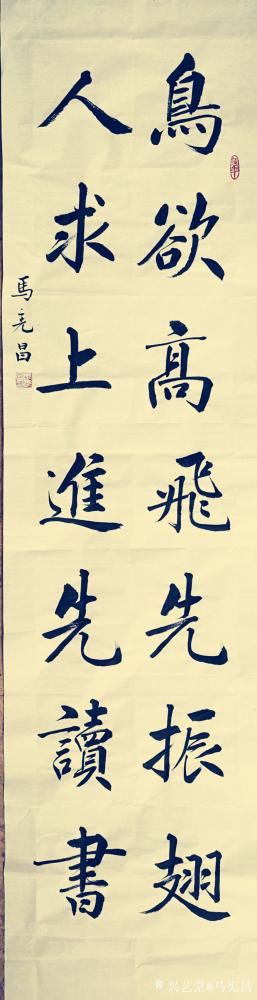 鳥欲高飛先振翅
人求上進先讀書
馬亮昌
兴艺堂@马亮昌